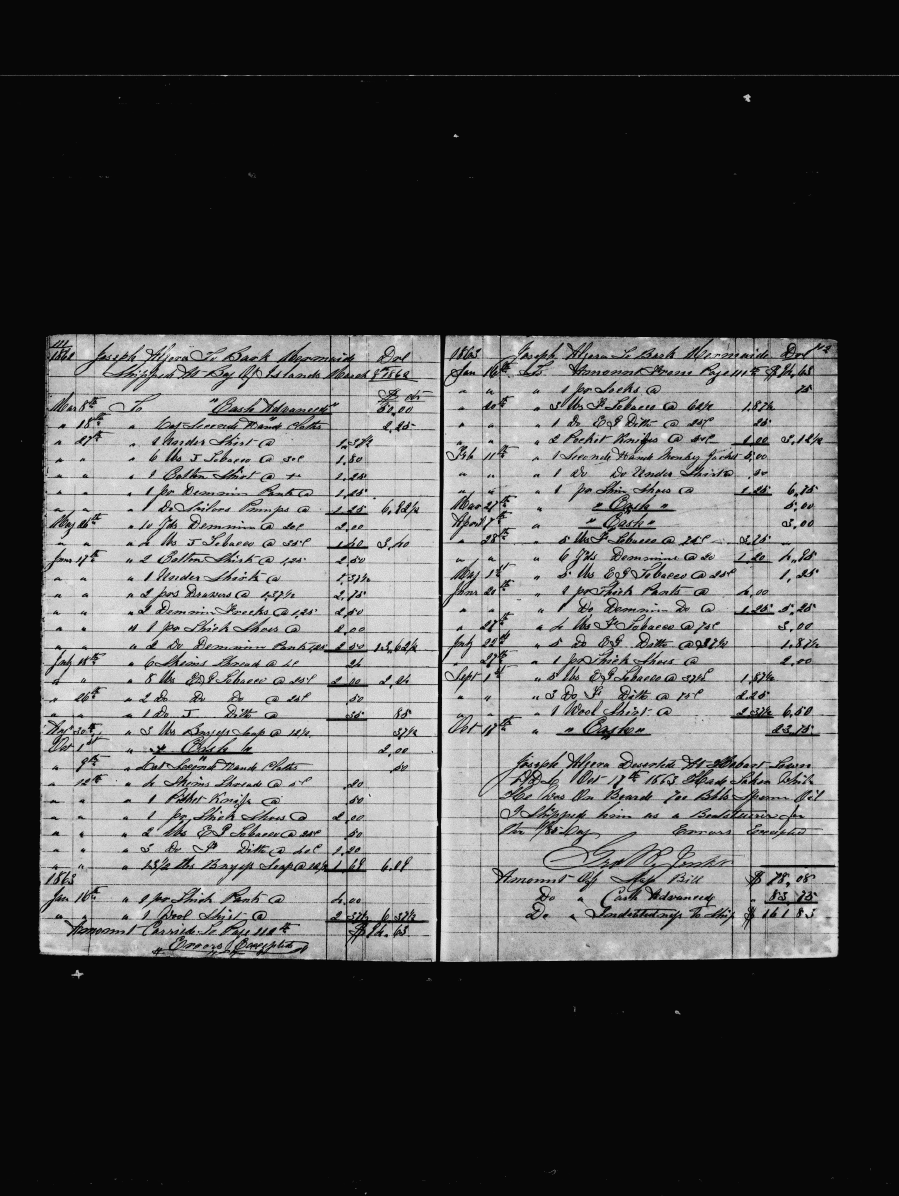 111
1862 Joseph Algera To Bark Mermaid Dol
Shipped At Bay Of Islands March 8th 1862
Mar 8th To "Cash Advanced" 50.00
" 18th " Second Hand Clothes 2,25
" 27th " 1 Under Shirt @ 1,37½
" " " 6 lbs J Tobacco @ 30c 1,80
" " " 1 Cotton Shirt @ 1,25
" " " 1 pr Demmin Pants @ 1,25
" " " 1 Do Sailors Pumps @ 1,25 6,92½
May 26th " 10 Yds Demmin @ 20c 2,00
" " " lbs J Tobacco @ 35c 1,40 3,40
June 17th " 2 Cotton Shirts @ 1,25 2,50
" " " 1 Under Shirt @ 1,37½
" " " 2 prs Drawers @ 1,37½ 2,75
" " " 2 Demmin Frocks @ 1,25 2,50
" " " 1 pr Thick Shoes @ 2,00
" " " 2 Do Demmin Pants 1,25 2,50 13,62½
July 18th " 6 Skeins Thread @ 4c 24
" " " 8 lbs E G Tobacco @ 25c 2,00 2,24
" 26th " 2 Do Do Do @ 25c 50
" " " 1 Do J Ditto @ 35 85
Aug 30th " 3 lbs Soap @ 12½ 37½
Oct 1st " " Cash " 2,00
" 9th " Second Hand Clothes 50
" 12th " 4 Skeins Threads @ 5c 20
" " " 1 Pocket Knife @ 50
" " " 1 pr Thick Shoes @ 2,00
" " " 2 lbs E G Tobacco @ 25c 50
" " " 3 Do Ditto @ 40c 1,20
" " " 13½ lbs Soap @ 12½ 1,68 6.08
1863
Jan 16th " 1 pr Thick Pants @ 4,00
" " " 1 Wool Shirt @ 2,37½ 6,37½
Amount Carried To Page 112th
" Errors Excepted
112
1863 Joseph Algera To Bark Mermaid Dol
Jan 16th To Amount From Page 111th
" " " 1 pr Socks @ 75
" 20th " 3 lbs F Tobacco @ 62½ 1,87½
" " " 1 Do E G Ditto @ 25c 25
" " " 2 Pocket Knifes @ 50c 1,00 3,12½
Feb 11th " 1 Second Hand Monkey Jacket 5,00
" " " 1 Do Do Under Shirt 50
" " " 1 pr Thin Shoes @ 1,25 6,75
Mar 27th " Cash " 5,00
April 7th " " Cash " 3,00
" 28th " 5 lbs F Tobacco @ 75c 3,75
" " " 6 Yds Demmins @ 20 1,20 4,95
May 1st " 5 lbs E G Tobacco @ 25c 1,25
June 20 " 1 pr Thick Pants @ 4,00
" " " 1 Do Demmin Do @ 1,25 5,25
" 27th " 4 lbs F Tobacco @ 75c 3,00
July " 5 Do E G Ditto @ 37½ 1,87½
" 27th " 1 pr Thick Shoes @ 2,00
Sept 1st " 5 lbs E G Tobacco @ 37½ 1,87½
" " " 3 Do F Ditto @ 75c 2,25
" " " 1 Wool Shirt @ 2,37½ 6,50
Oct 17th " " Cash " 23,75
Joseph Algera Deserted At Hobart Town
Oct 17th 1863 Had Taken While
He Was On Board 700 Bbls Sperm Oil
I Shipped him as a Boatsteerer for
the 1/85 Lay Errors Excepted
Amount Of Slop Bill $ 78,08
Do " Cash Advanced " 83,75
Do " Indebtedness To Ship $ 161 83